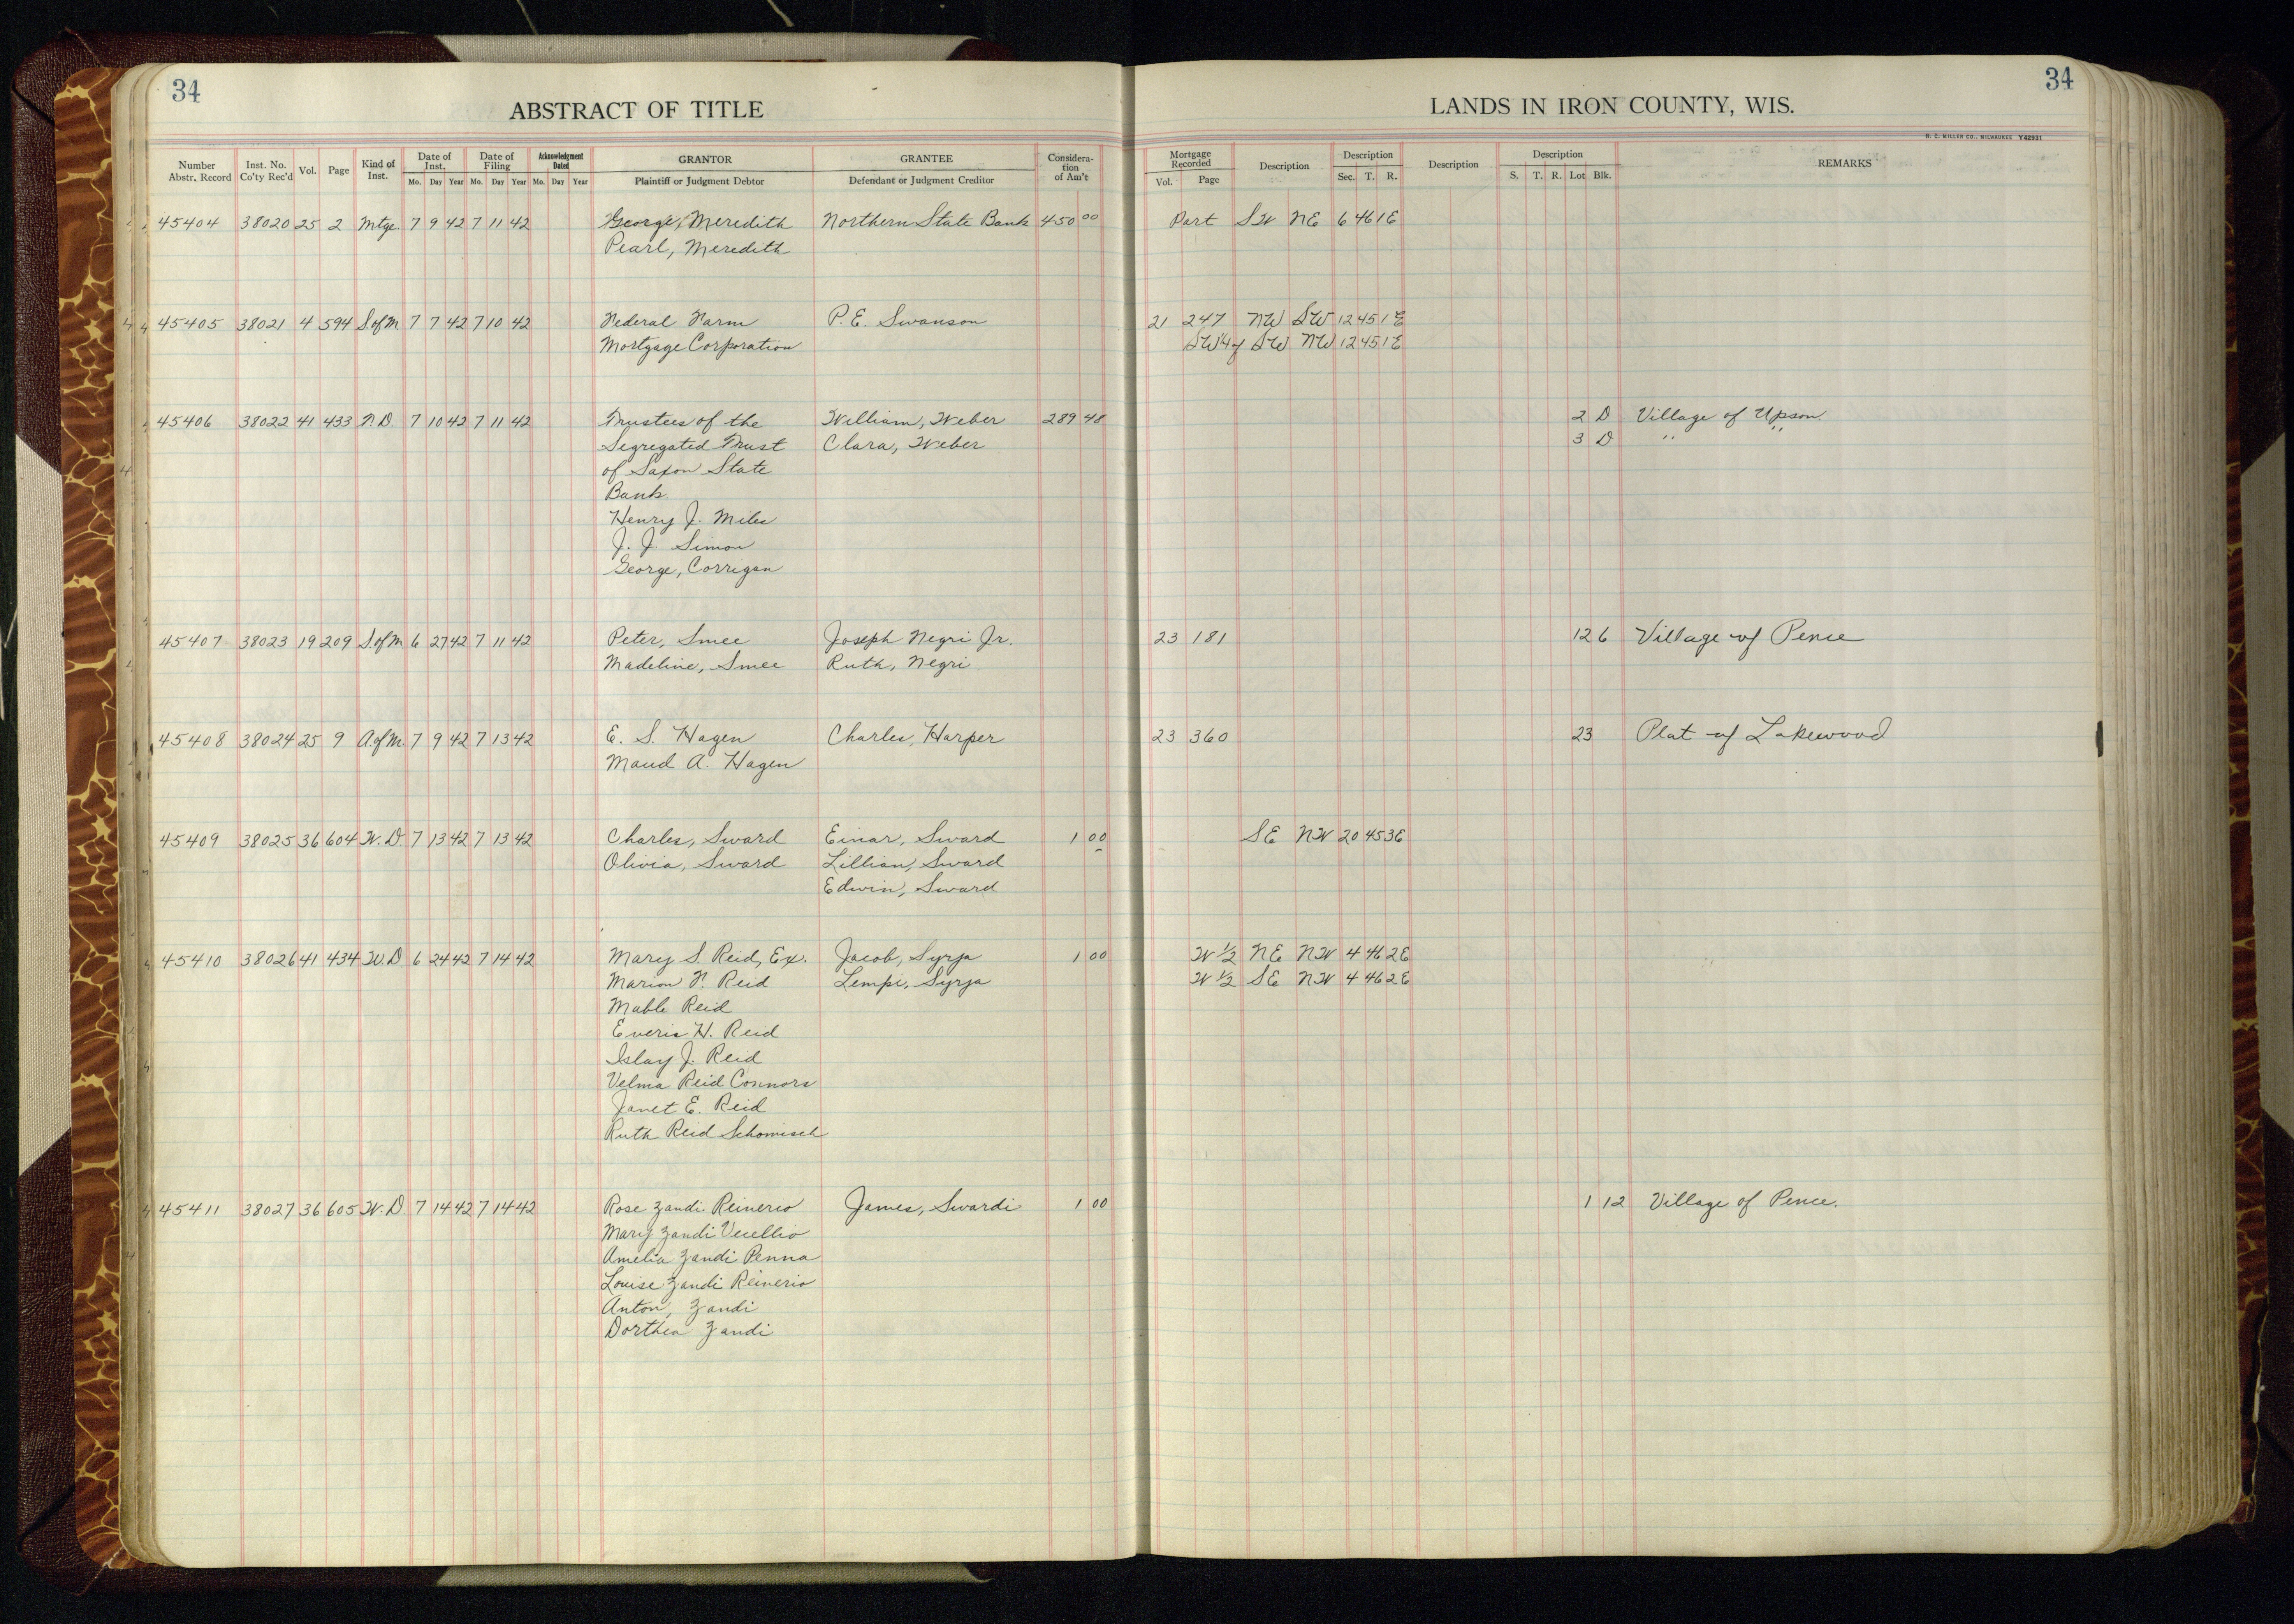 34
34
ABSTRACT OF TITLE
LANDS IN IRON COUNTY, WIS.
H. C. MILLER CO., MILWAUKEE Y42931
Number Abstr. Record Inst. No. Co'ty Rec'd Vol. Page Kind of Inst. Date of Inst. Mo. Day Year Date of Filing Mo. Day Year Acknowledgment Dated Mo. Day Year GRANTOR Plaintiff or Judgment Debtor GRANTEE Defendant or Judgment Creditor Consideration of Am't Mortgage Recorded Vol. Page Description Description Sec. T. R. Description Description S. T. R. Lot Blk. REMARKS
45404 38020 25 2 Mtge. 7 9 42 7 11 42 George, Meredith Northern State Bank 450 00 Part SW NE 6 46 1E
Pearl, Meredith
45405 38021 4 594 S.of M 7 7 42 7 10 42 Federal Farm P. E. Swanson 21 247 NW SW 12 45 1E
Mortgage Corporation SW¼ of SW NW 12 45 1E
45406 38022 41 433 T.D. 7 10 42 7 11 42 Trustees of the William, Weber 289 48 2 D Village of Upson
Segregated Trust Clara, Weber 3 D " "
of Saxon State
Bank
Henry J. Miles
J. J. Simon
George, Corrigan
45407 38023 19 209 S.of M 6 27 42 7 11 42 Peter, Smee Joseph Negri Jr. 23 181 12 6 Village of Pence
Madeline, Smee Ruth, Negri
45408 38024 25 9 A.of M. 7 9 42 7 13 42 E. S. Hagen Charles, Harper 23 360 23 Plat of Lakewood
Maud A. Hagen
45409 38025 36 604 W.D. 7 13 42 7 13 42 Charles, Sward Einar, Sward 1 00 SE NW 20 45 3E
Olivia, Sward Lillian, Sward
Edwin, Sward
45410 38026 41 434 W.D 6 24 42 7 14 42 Mary S. Reid, Ex. Jacob, Syrja 1 00 W ½ NE NW 4 46 2E
Marion Reid Lempi, Syrja W ½ SE NW 4 46 2E
Mable Reid
Everis H. Reid
Islay J. Reid
Velma Reid Connors
Janet E. Reid
Ruth Reid Schomisch
45411 38027 36 605 W.D 7 14 42 7 14 42 Rose Zandi Reinerio James, Swardi 1 00 1 12 Village of Pence.
Mary Zandi Vecellio
Amelia Zandi Penna
Louise Zandi Reinerio
Anton, Zandi
Dorthea Zandi